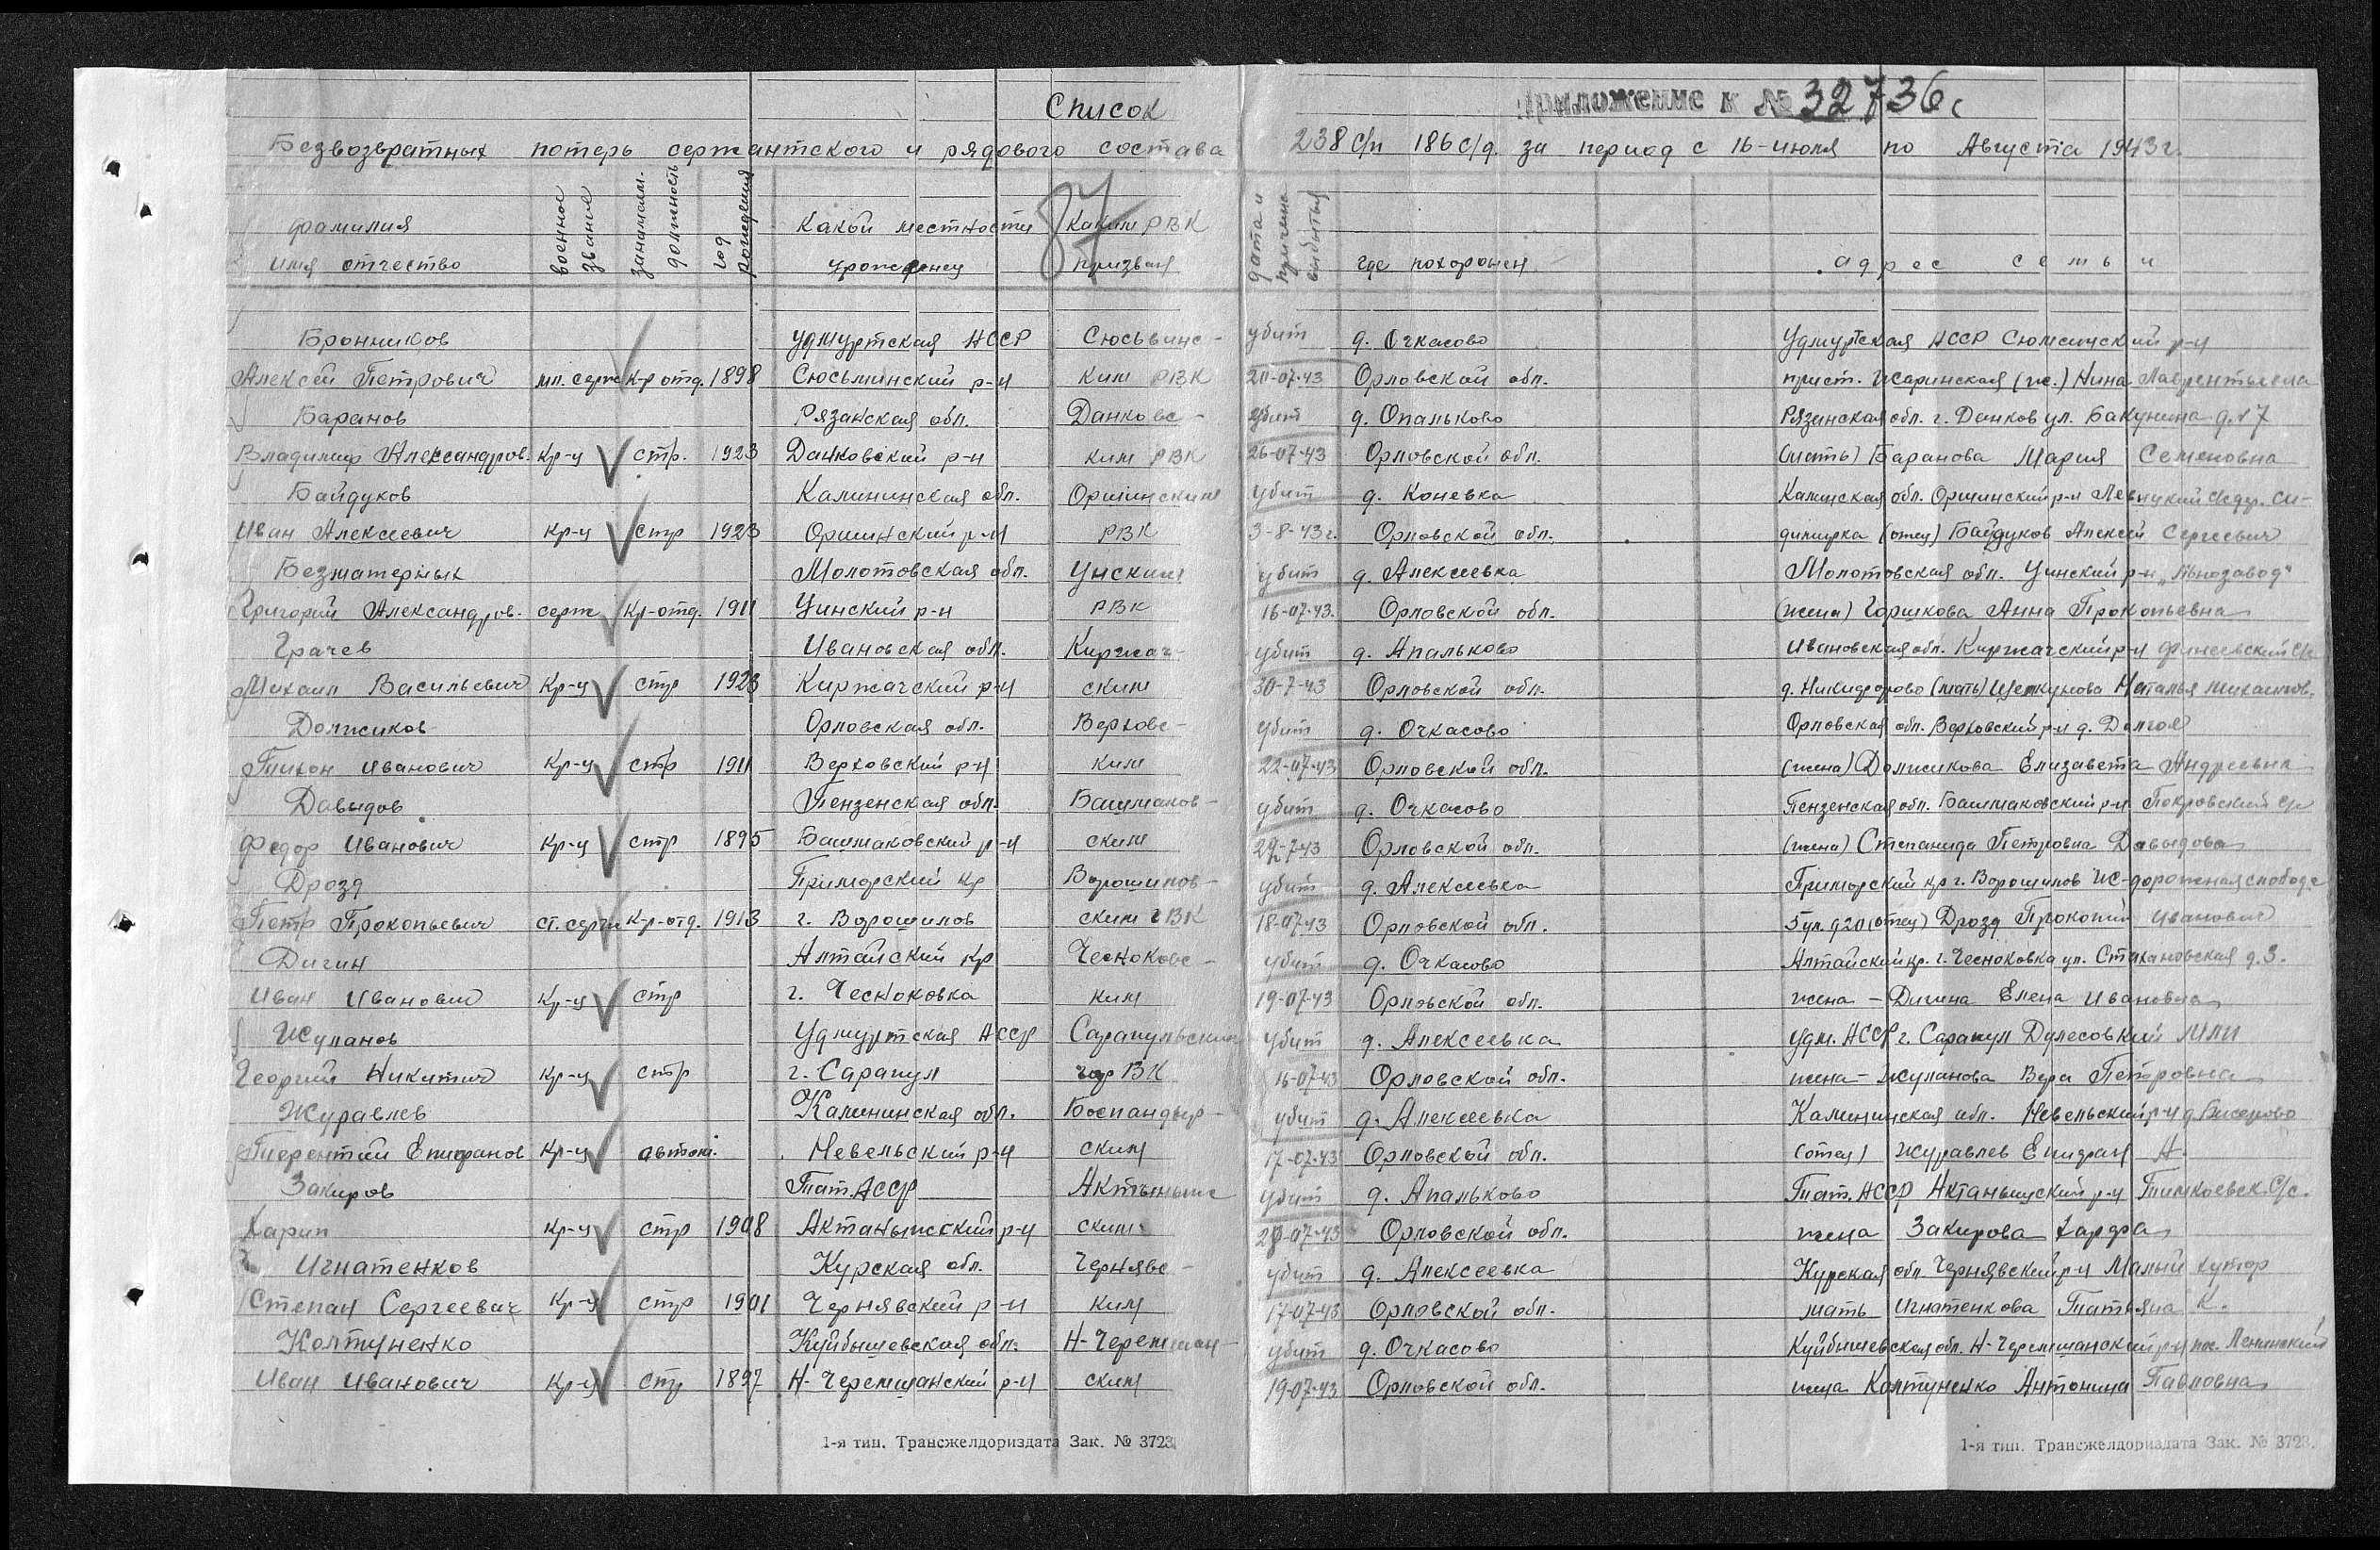 Приложение к № 32736с
Список
Безвозвратных потерь сержантского и рядового состава 238 с/п 186 с/д. за период с 16-июля по Августа 1943 г.
87
фамилия имя отчество
военное звание
занимаем. должность
год рождения
Какой местности уроженец
Каким РВК призван
дата и причина выбытия
где похоронен
адрес семьи
Бронников Удмуртская АССР Сюсьвинс- убит д. Очкасово Удмуртская АССР Сюмсинский р-н
Алексей Петрович мл. серж к-р отд. 1898 Сюсьминский р-н ким РВК 20-07-43 Орловской обл. прист. (ж.) Нина Лаврентьевна
Баранов Рязанская обл. Данковс- убит д. Опальково Рязанская обл. г. Данков ул. Бакунина д. № 7
Владимир Александров. Кр-ц стр. 1923 Данковский р-н ким РВК 26-07-43 Орловской обл. (мать) Баранова Мария Семеновна
Байдуков Калининская обл. Оршинским убит д. Коневка Калинская обл. Оршинский р-н
Иван Алексеевич Кр-ц стр 1923 Оршинский р-н РВК 3-8-43г. Орловской обл. (отец) Байдуков Алексей Сергеевич
Безматерных Молотовская обл. Унским убит д. Алексеевка Молотовская обл. Уинский р-н „Льнозавод"
Григорий Александров. серж Кр-отд. 1911 Уинский р-н РВК 16-07-43. Орловской обл. (жена) Горшкова Анна Прокопьевна
Грачев Ивановская обл. Киржач- убит д. Апальково Ивановская обл. Киржачский р-н Финеевский с/с
Михаил Васильевич Кр-ц стр 1923 Киржачский р-н ским 30-7-43 Орловской обл. д. Никифорово (мать) Наталья Михайлов.
Должиков Орловская обл. Верховс- убит д. Очкасово Орловская обл. Верховский р-н д. Долгая
Тихон Иванович Кр-ц стр 1911 Верховский р-н ким 22-07-43 Орловской обл. (жена) Должикова Елизавета Андреевна
Давыдов Пензенская обл. Башмаков- убит д. Очкасово Пензенская обл. Башмаковский р-н Покровский с/с
Федор Иванович Кр-ц стр 1895 Башмаковский р-н ским 22-7-43 Орловской обл. (жена) Степанида Петровна Давыдова
Дрозд Приморский кр Ворошилов- убит д. Алексеевка Приморский кр г. Ворошилов Ж-дорожная слобода
Петр Прокопьевич ст. серж К-р-отд. 1913 г. Ворошилов ским ГВК 18-07-43 Орловской обл. 5 ул. д 20 (отец) Дрозд Прокопий Иванович
Дигин Алтайский кр Чесноковс- убит д. Очкасово Алтайский кр. г. Чесноковка ул. Стахановская д. 3.
Иван Иванович Кр-ц стр г. Чесноковка ким 19-07-43 Орловской обл. жена - Дигина Елена Ивановна
Жуланов Удмуртская АССР Сарапульским убит д. Алексеевка Удм. АССР г. Сарапул
Георгий Никитич Кр-ц стр г. Сарапул гор ВК 16-07-43 Орловской обл. жена - Жуланова Вера Петровна
Журавлев Калининская обл. убит д. Алексеевка Калининская обл. Невельский р-н д.
Терентий Епифанов Кр-ц автом. Невельский р-н ским 17-07-43 Орловской обл. (отец) Журавлев Епифан А.
Закиров Тат. АССР Актаныш убит д. Апальково Тат. АССР Актанышский р-н с/с.
Карип Кр-ц стр 1908 Актанышский р-н ским 28-07-43 Орловской обл. жена Закирова
Игнатенков Курская обл. Чернявс- убит д. Алексеевка Курская обл. Чернявский р-н Малый хутор
Степан Сергеевич Кр-ц стр 1901 Чернявский р-н ким 17-07-43 Орловской обл. мать Игнатенкова Татьяна К.
Колтуненко Куйбышевская обл. Н-Черемшан- убит д. Очкасово Куйбышевская обл. Н-Черемшанский р-н пос. Ленинский
Иван Иванович Кр-ц стр 1897 Н-Черемшанский р-н ским 19-07-43 Орловской обл. жена Колтуненко Антонина Павловна
1-я тип. Трансжелдориздата Зак. № 3723.
1-я тип. Трансжелдориздата Зак. № 3723.